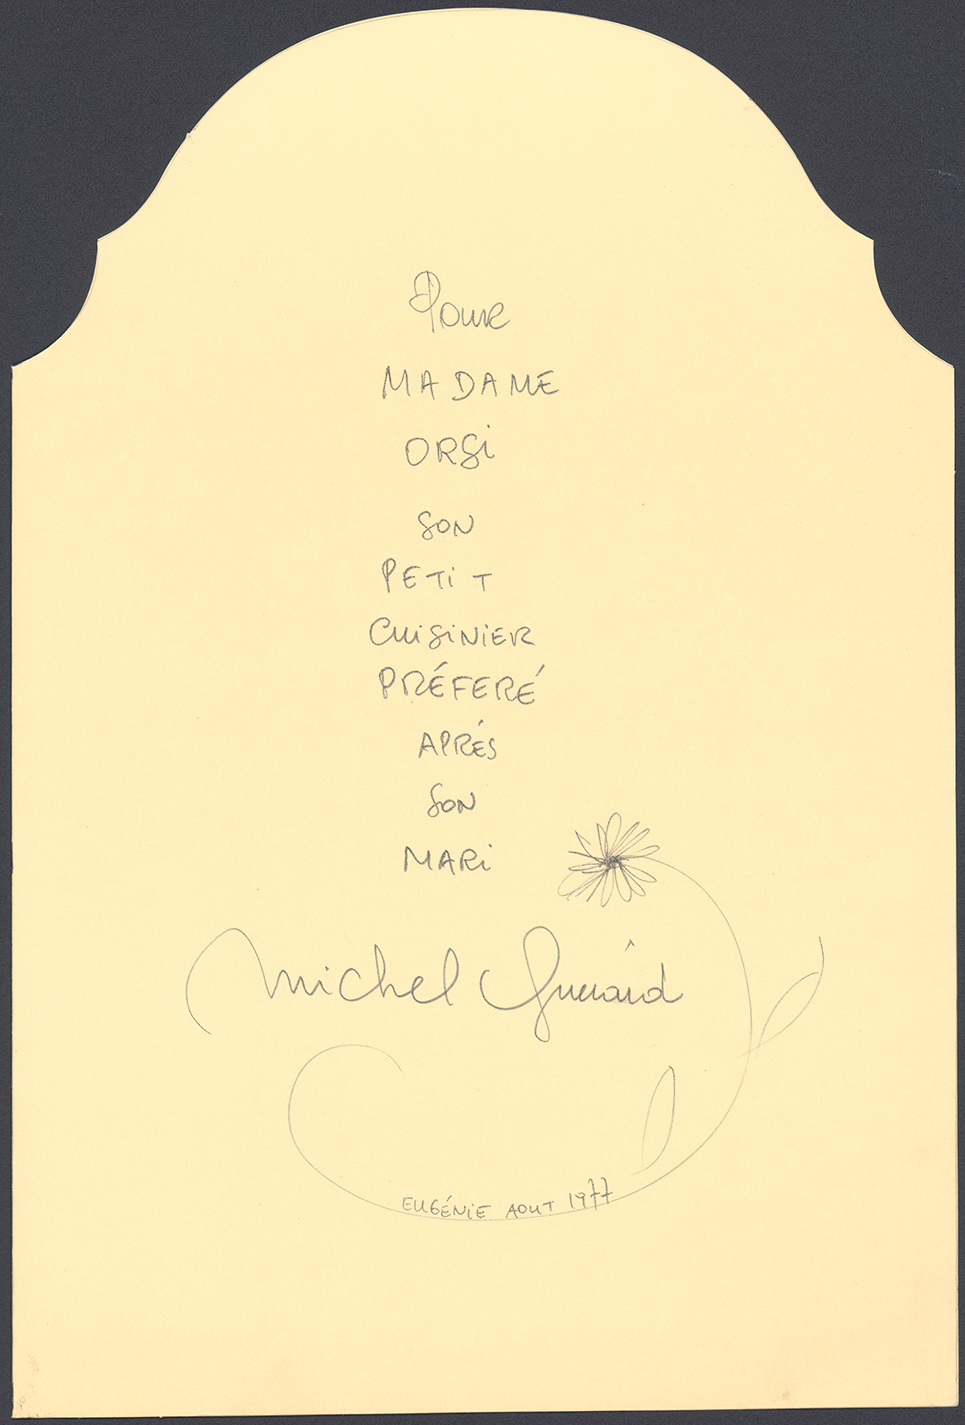 Pour
MADAME
ORSi
SON
PETiT
CUiSiNiER
PRÉFERÉ
APRÉS
SON
MARi
Michel Guérard
EUGÉNiE AOUT 1977